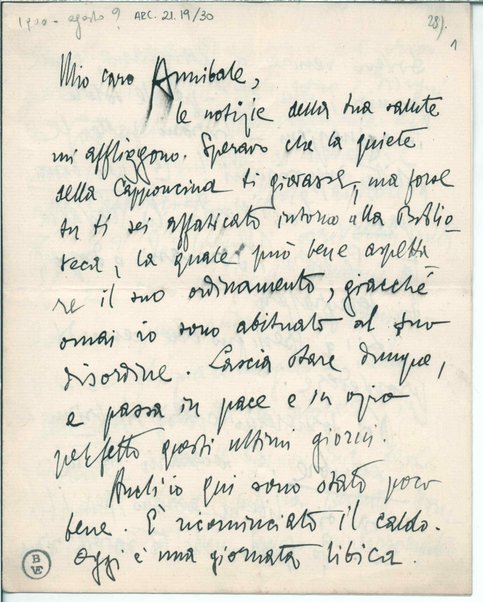 1900 - agosto ? ARC. 21.19/30
28).
1
Mio caro Annibale,
le notizie della tua salute
mi affliggono. Speravo che la quiete
della Capponcina ti giovasse, ma forse
tu ti sei affaticato intorno alla Biblio-
teca, la quale può bene aspetta
re il suo ordinamento, giacché
omai io sono abituato al suo
disordine. Lascia stare dunque,
e passa in pace e in ozio
perfetto questi ultimi giorni.
Anch'io qui sono stato poco
bene. È ricominciato il caldo.
Oggi è una giornata libica.
B
VE